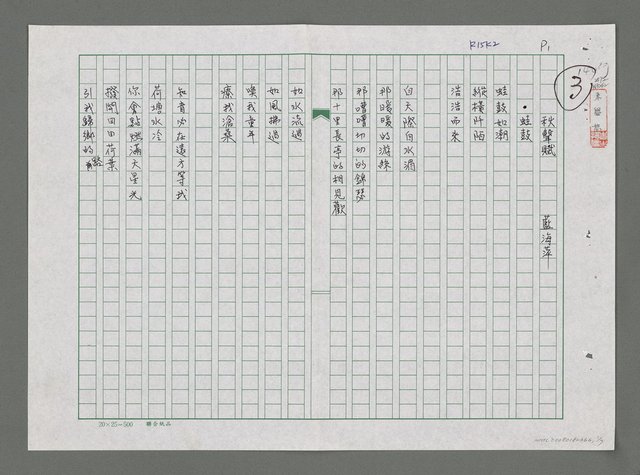 R15K2
P1
3
秋聲賦 藍海萍
•蛙鼓
蛙鼓如潮
縱橫阡陌
浩浩而來
自天際自水湄
那暖暖的游絲
那嘈嘈切切的錦瑟
那十里長亭的相見歡
如水流過
如風拂過
喚我童年
療我滄桑
知音必在遠方等我
荷塘水冷
你會點燃滿天星光
撥開田田荷葉
引我歸鄉的路
20×25=500 聯合紙品